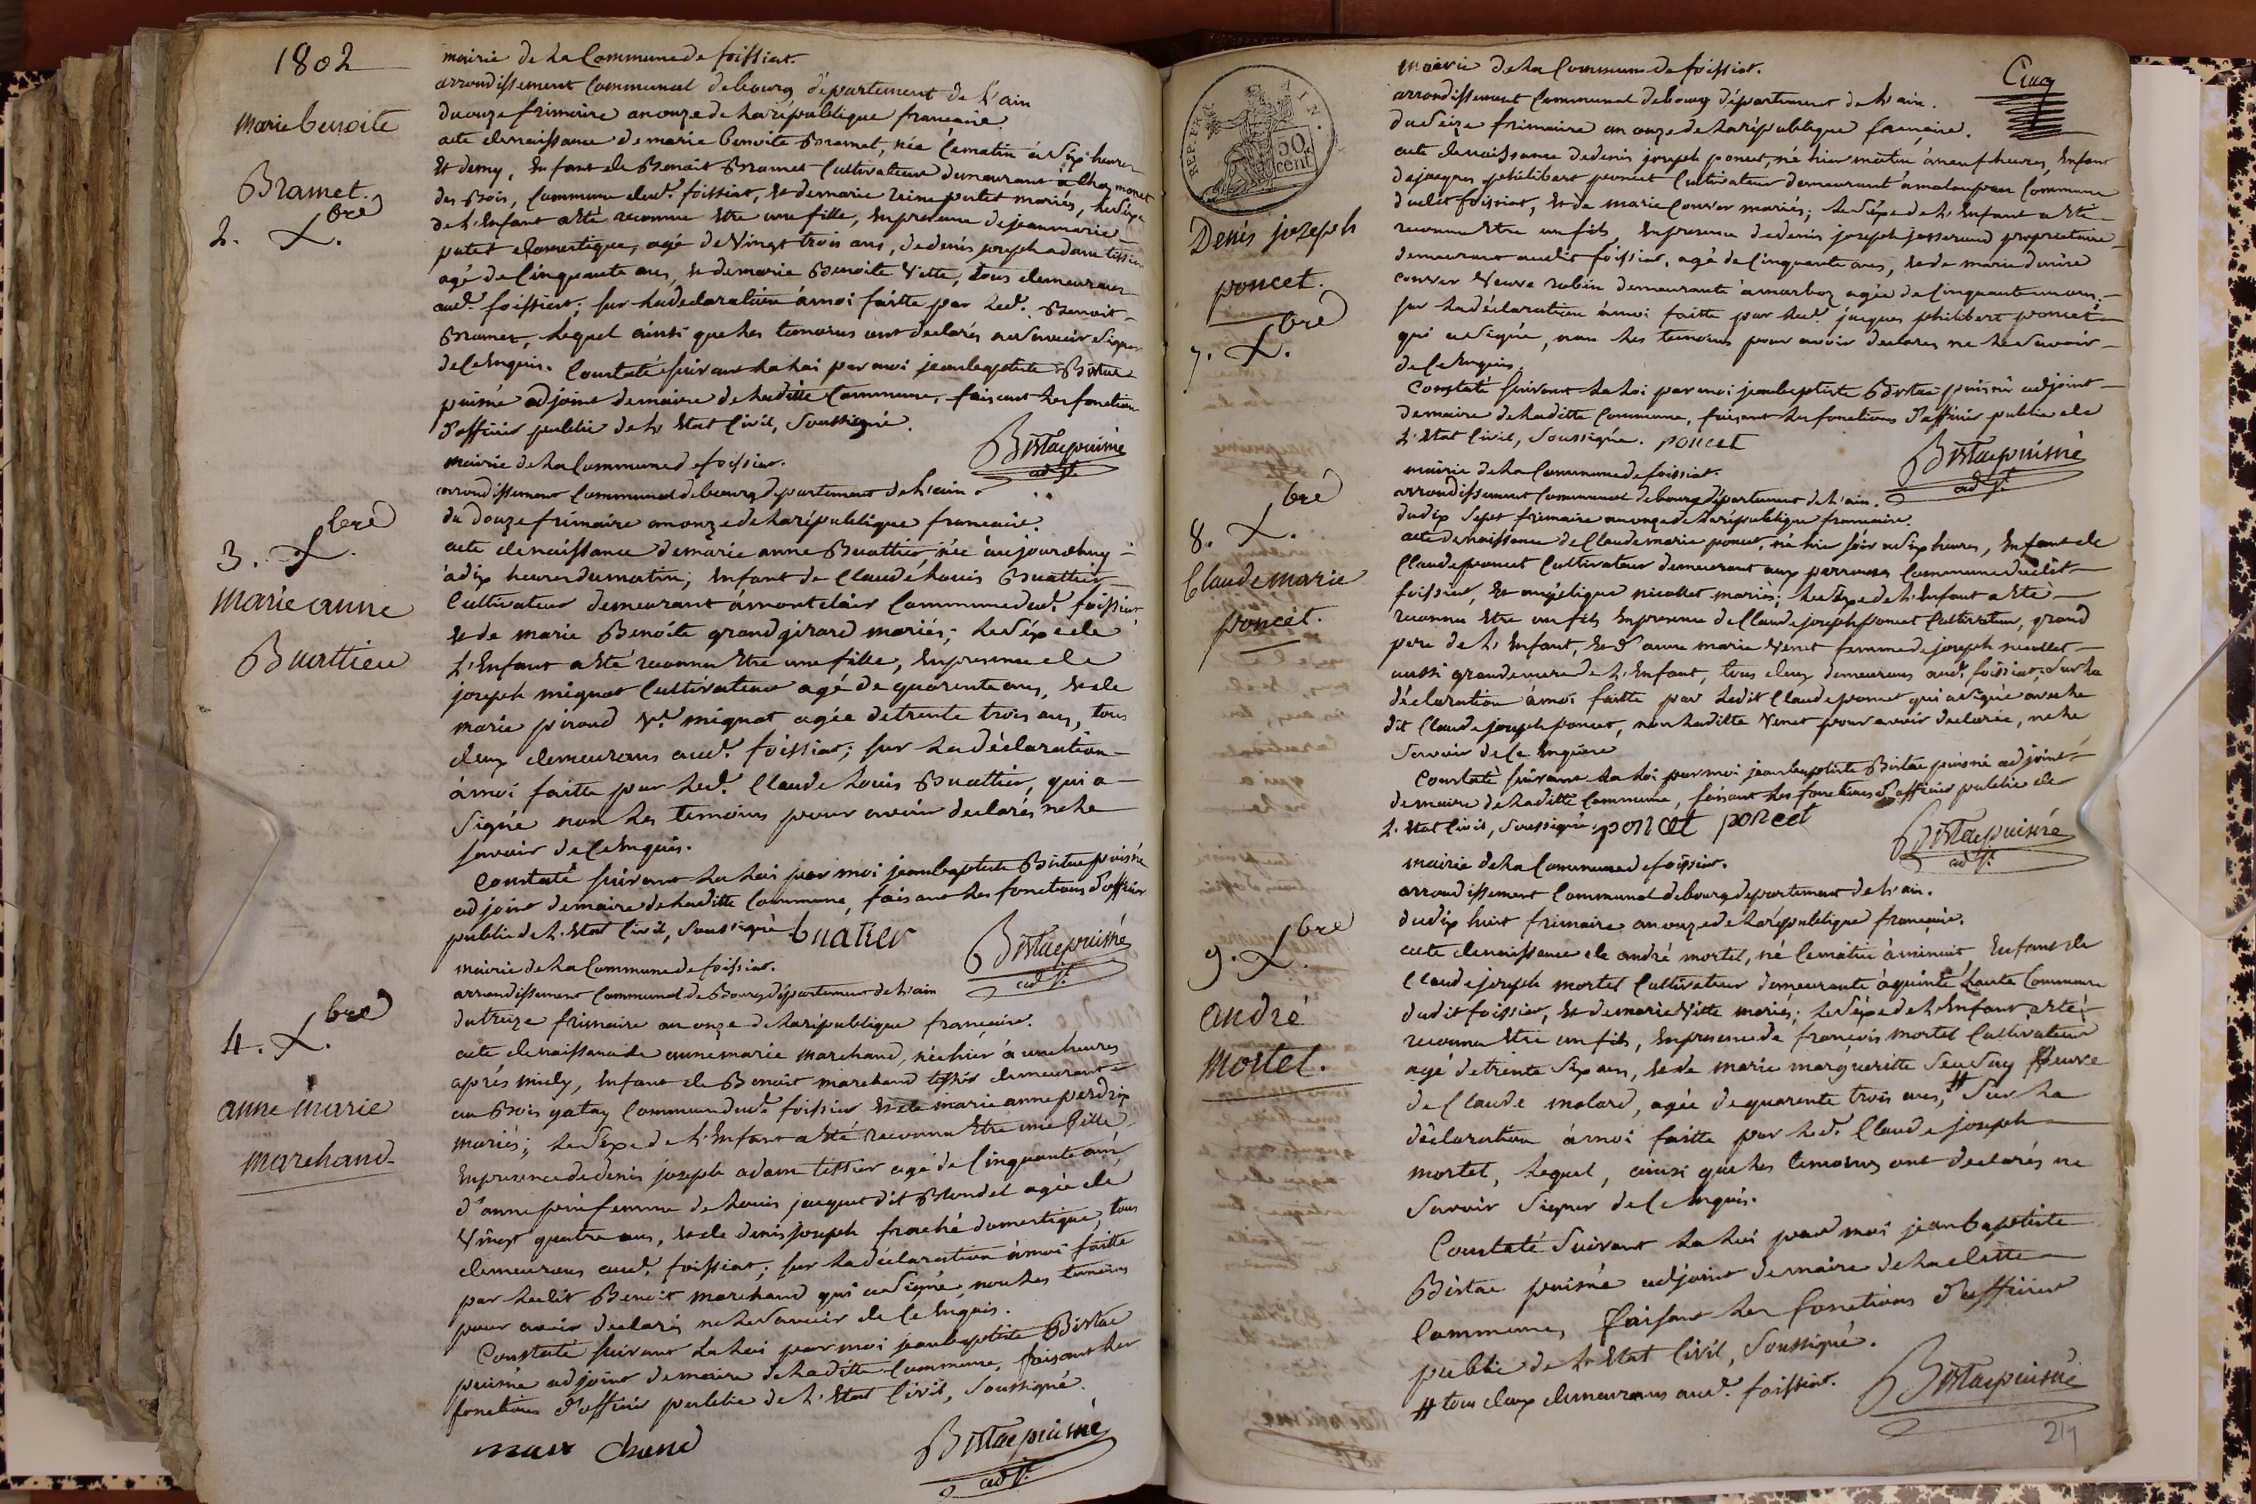 1802
marie benoite
Bramet.
2. Xbre
mairie de La Commune de foissiat.
arrondissement Communal de bourg département de L'ain
du onze frimaire an onze de La république francaise.
acte de naissance de marie benoite Bramet, née Cematin à Six heures
Et demy, Enfant de Benoit Bramet Cultivateur demeurant à Chez monet
des Bois, Commune dud. foissiat, Et de marie Reine putet mariés, Le Séxe
de L'Enfant a Eté reconnu Etre une fille, En présence de jean marie
putet domestique, agé de Vingt trois ans, de denis joseph adam tissier
agé de Cinquante ans, et de marie Benoite Vitte, tous demeurans
aud. foissiat; sur La déclaration à moi faitte par Led. Benoit
Bramet, Lequel ainsi que Les temoins ont declarés ne Savoir Signer
de Ce Enquis. Constaté Suivant La Loi par moi jean baptiste Bistac
puisné adjoint de maire de Laditte Commune, faisant Les fonctions
d'officier public de L'Etat Civil, Soussigné.
Bistac puisné
adj.t
3. Xbre
marie anne
Buattier
mairie de La Commune de foissiat.
arrondissement Communal de bourg département de L'ain.
du douze frimaire an onze de La république francaise.
acte de naissance de marie anne Buattier née aujourdhuy
à dix heures du matin; Enfant de Claude Louis Buattier
Cultivateur demeurant à montclair Commune dud. foissiat
Et de marie Benoite grand girard mariés; Le Séxe de
L'Enfant a Eté reconnu Etre une fille, En présence de
joseph mignot Cultivateur agé de quarente ans, et de
marie piroud V.e mignot agée de trente trois ans, tous
deux demeurans aud. foissiat; sur La déclaration
à moi faitte par Led. Claude Louis Buattier, qui a
Signé non Les temoins pour avoir declarés ne Le
Savoir de Ce Enquis.
Constaté Suivant La Loi par moi jean baptiste Bistac puisné
adjoint de maire de Laditte Commune, faisant Les fonctions d'officier
public de L'Etat Civil, Soussigné buatier
Bistac puisné
adj.t
4. Xbre
anne marie
marchand
mairie de La Commune de foissiat.
arrondissement Communal de Bourg département de L'ain
du treize frimaire an onze de La république francaise.
acte de naissance de anne marie marchand, née hier à une heures
après midy, Enfant de Benoit marchand tissier demeurant
au Bois gatay Commune dud. foissiat Et de marie anne perdrix
mariés; Le Séxe de L'Enfant a Eté reconnu Etre une fille
En présence de denis joseph adam tissier agé de Cinquante ans,
d'anne femme de Louis jacquet dit Blondel agée de
Vingt quatre ans, et de denis joseph fraché domestique, tous
demeurans aud. foissiat; sur La déclaration à moi faitte
par Ledit Benoit marchand qui a Signé, non Les temoins
pour avoir declarés ne Le Savoir de Ce Enquis.
Constaté Suivant La Loi par moi jean baptiste Bistac
puisné adjoint de maire de Laditte Commune, faisant Les
fonctions d'officier public de L'Etat Civil, Soussigné.
mar chand
Bistac puisné
adj.t
REP. FRA.
50
cent
AIN.
Cinq
Denis joseph
poncet.
7. Xbre
mairie de La Commune de foissiat.
arrondissement Communal de bourg département de L'ain.
du Seize frimaire an onze de La république francaise.
acte de naissance de denis joseph poncet, né hier matin à neuf heures, Enfant
de jacques philibert poncet Cultivateur demeurant à Commune
dudit foissiat, Et de marie Convert mariés; Le Séxe de L'Enfant a Eté
reconnu Etre un fils, En présence de denis joseph josserand propriétaire
demeurant audit foissiat, agé de Cinquante ans, et de marie
Convert Veuve robin demeurante à marboz agée de Cinquante un ans,
sur La déclaration à moi faitte par Led. jacques philibert poncet
qui a Signé, non Les temoins pour avoir declarés ne Le Savoir
de Ce Enquis.
Constaté Suivant La Loi par moi jean baptiste Bistac puisné adjoint
de maire de Laditte Commune, faisant Les fonctions d'officier public de
L'Etat Civil, Soussigné. poncet
Bistac puisné
adj.t
8. Xbre
Claude marie
poncet.
mairie de La Commune de foissiat.
arrondissement Communal de bourg département de L'ain.
du dix Sept frimaire an onze de La république francaise.
acte de naissance de Claude marie poncet, né hier Soir à Six heures, Enfant de
Claude poncet Cultivateur demeurant aux Commune dudit
foissiat, Et angélique nicollet mariés; Le Séxe de L'Enfant a Eté
reconnu Etre un fils En présence de Claude joseph poncet Cultivateur, grand
pere de L'Enfant, Et d'anne marie Venet femme de joseph nicollet
aussi grande mere de L'Enfant, tous deux demeurans aud. foissiat, Sur La
déclaration à moi faitte par Ledit Claude poncet qui a Signé avec Le
dit Claude joseph poncet, non Laditte Venet pour avoir declarée, ne Le
Savoir de Ce Enquise
Constaté Suivant La Loi par moi jean baptiste Bistac puisné adjoint
de maire de Laditte Commune, faisant Les fonctions d'officier public de
L'Etat Civil, Soussigné. poncet poncet
Bistac puisné
adj.t
9. Xbre
andré
Mortel.
mairie de La Commune de foissiat.
arrondissement Communal de bourg département de L'ain.
du dix huit frimaire an onze de La république francaise.
acte de naissance de andré mortel, né Cematin à minuit, Enfant de
Claude joseph mortel Cultivateur demeurante à Commune
dudit foissiat, Et de marie Vitte mariés; Le Séxe de L'Enfant a Eté
reconnu Etre un fils, En présence de françois mortel Cultivateur
agé de trente Six ans, et de marie margueritte Veuve
de Claude malard, agée de quarente trois ans, # Sur La
déclaration à moi faitte par Led. Claude joseph
mortel, Lequel, ainsi que Les temoins ont declarés ne
Savoir Signer de Ce Enquis.
Constaté Suivant La Loi par moi jean baptiste
Bistac puisné adjoint de maire de Laditte
Commune, faisant Les fonctions d'officier
public de L'Etat Civil, Soussigné.
# tous deux demeurans aud. foissiat.
Bistac puisné